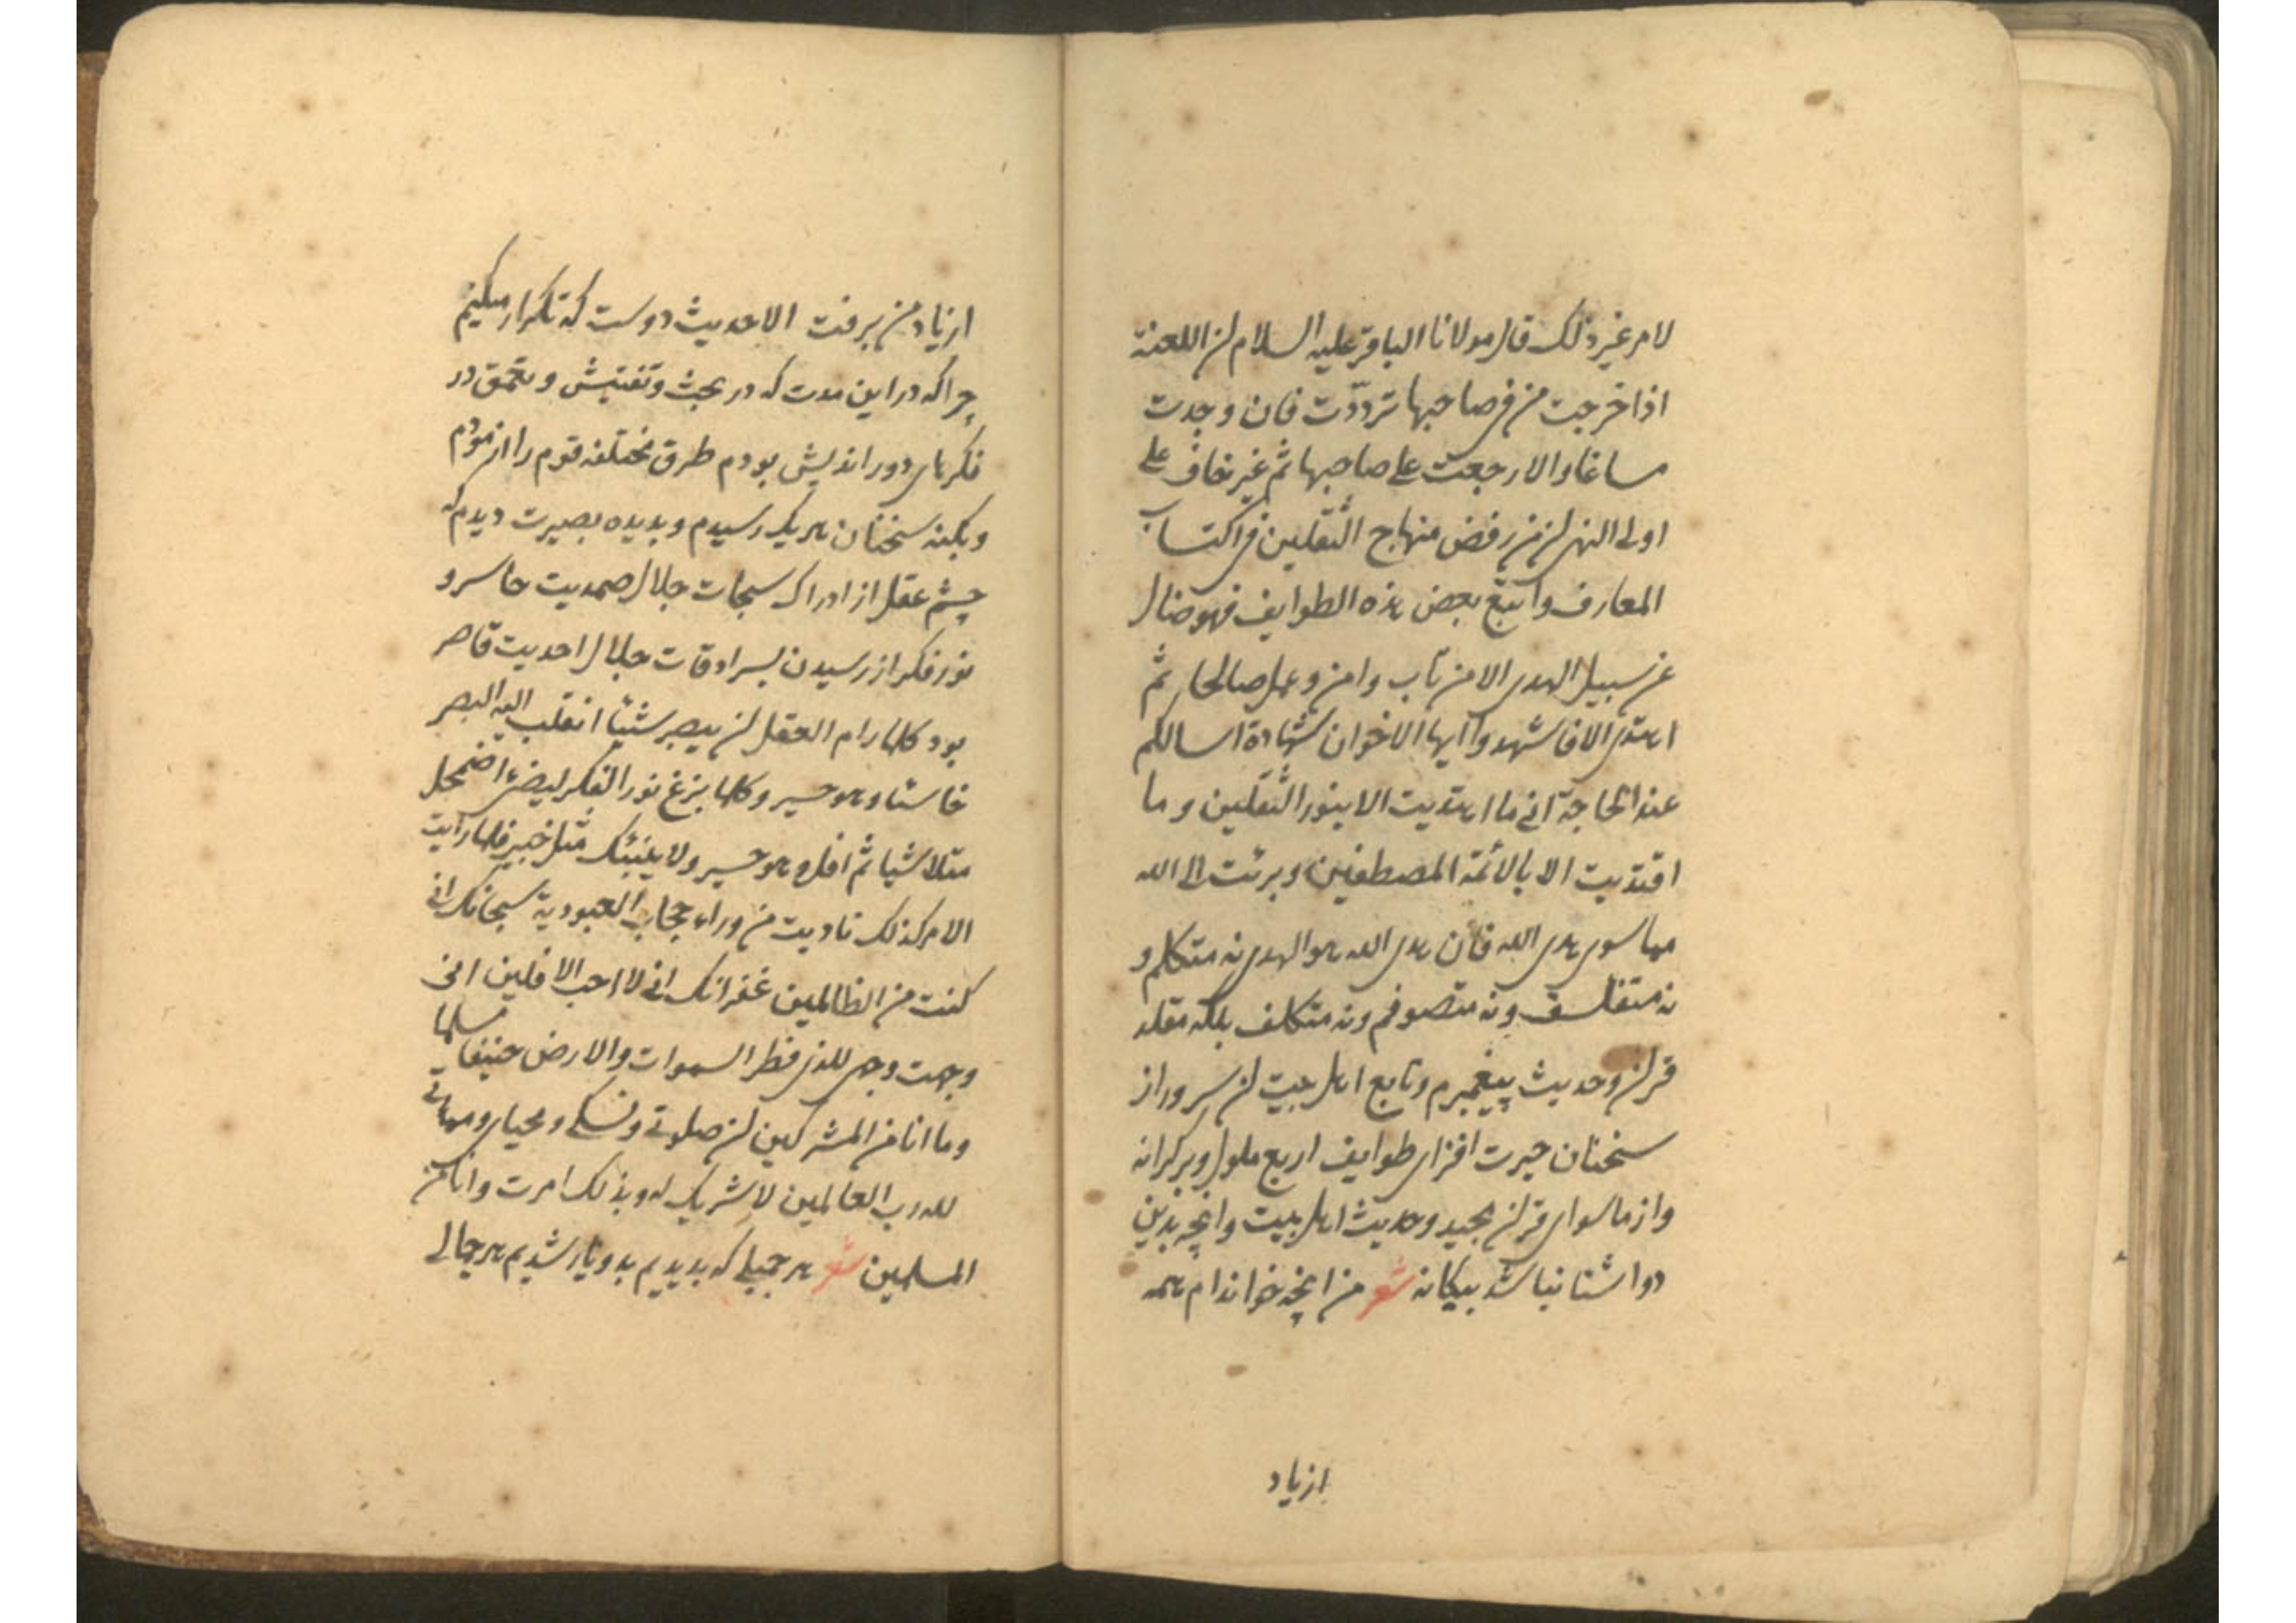 لامر غیر ذلک قال مولانا الباقر علیه السلام ان اللعنة
اذا خرجت من فی صاحبها تردّدت فان وجدت
مساغا والا رجعت علی صاحبها ثم غیر خاف علی
اولی النهی ان من رفض منهاج الثقلین فی اکتساب
المعارف و اتبع بعض هذه الطوایف فهو ضال
عن سبیل الهدی الا من تاب وامن و عمل صالحا ثم
اهتدی الا فاشهدوا ایها الاخوان شهادة اسالکم
عند الحاجة انی ما اهتدیت الا بنور الثقلین و ما
اقتدیت الا بالائمة المصطفین و برئت الی الله
مما سوی هدی الله فان هدی الله هو الهدی نه متکلم و
نه متفلسف و نه متصوفم و نه متکلف بلکه مقلد
قران و حدیث پیغمبرم و تابع اهل بیت ان سرور از
سخنان حیرت افزای طوایف اربع ملول و بر کرانه
و از ماسوای قران مجید و حدیث اهل بیت و انچه بدین
دو اشنا نباشد بیکانه شعر من انچه خوانده‌ام همه
از یاد
از یاد من برفت الا حدیث دوست که تکرار میکنیم
چرا که در این مدت که در بحث و تفتیش و تعمق در
فکرهای دور اندیش بودم طرق مختلفه قوم را ازمودم
و بکنه سخنان هریک رسیدم و بدیده بصیرت دیدم که
چشم عقل از ادراک سبحات جلال صمدیت حاسر و
نور فکر از رسیدن بسرادقات جلال احدیت قاصر
بود کلما رام العقل ان یبصر شیئا انقلب الیه البصر
خاسئا و هو حسیر و کلما بزغ نور الفکر لیضیء اضمحل
متلاشیا ثم افل و هو حسیر ولا ینبئک مثل خبیر فلما رایت
الامر کذلک نادیت من وراء حجاب العبودیة سبحانک انی
کنت من الظالمین غفرانک انی لا احب الافلین انی
وجهت وجهی للذی فطر السموات والارض حنیفا مسلما
وما انا من المشرکین ان صلوتی و نسکی و محیای و مماتی
لله رب العالمین لا شریک له و بذلک امرت و انا من
المسلمین شعر هر جمیلی که بدیدیم بدو یار شدیم هر جمالی